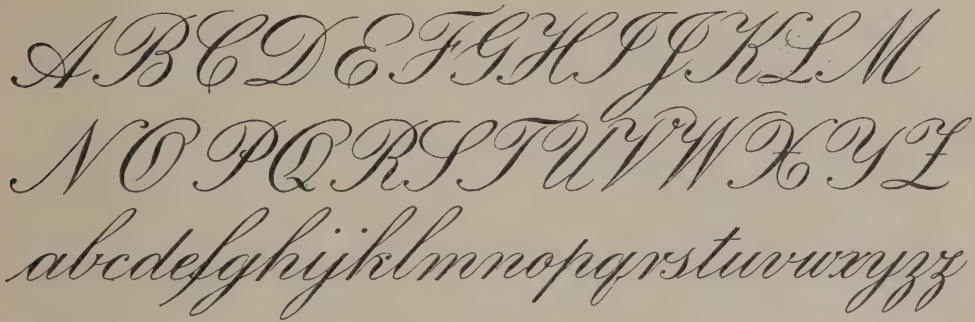 A B C D E F G H I J K L M
N O P Q R S T U V W X Y Z
abcdefghijklmnopqrstuvwxyzz